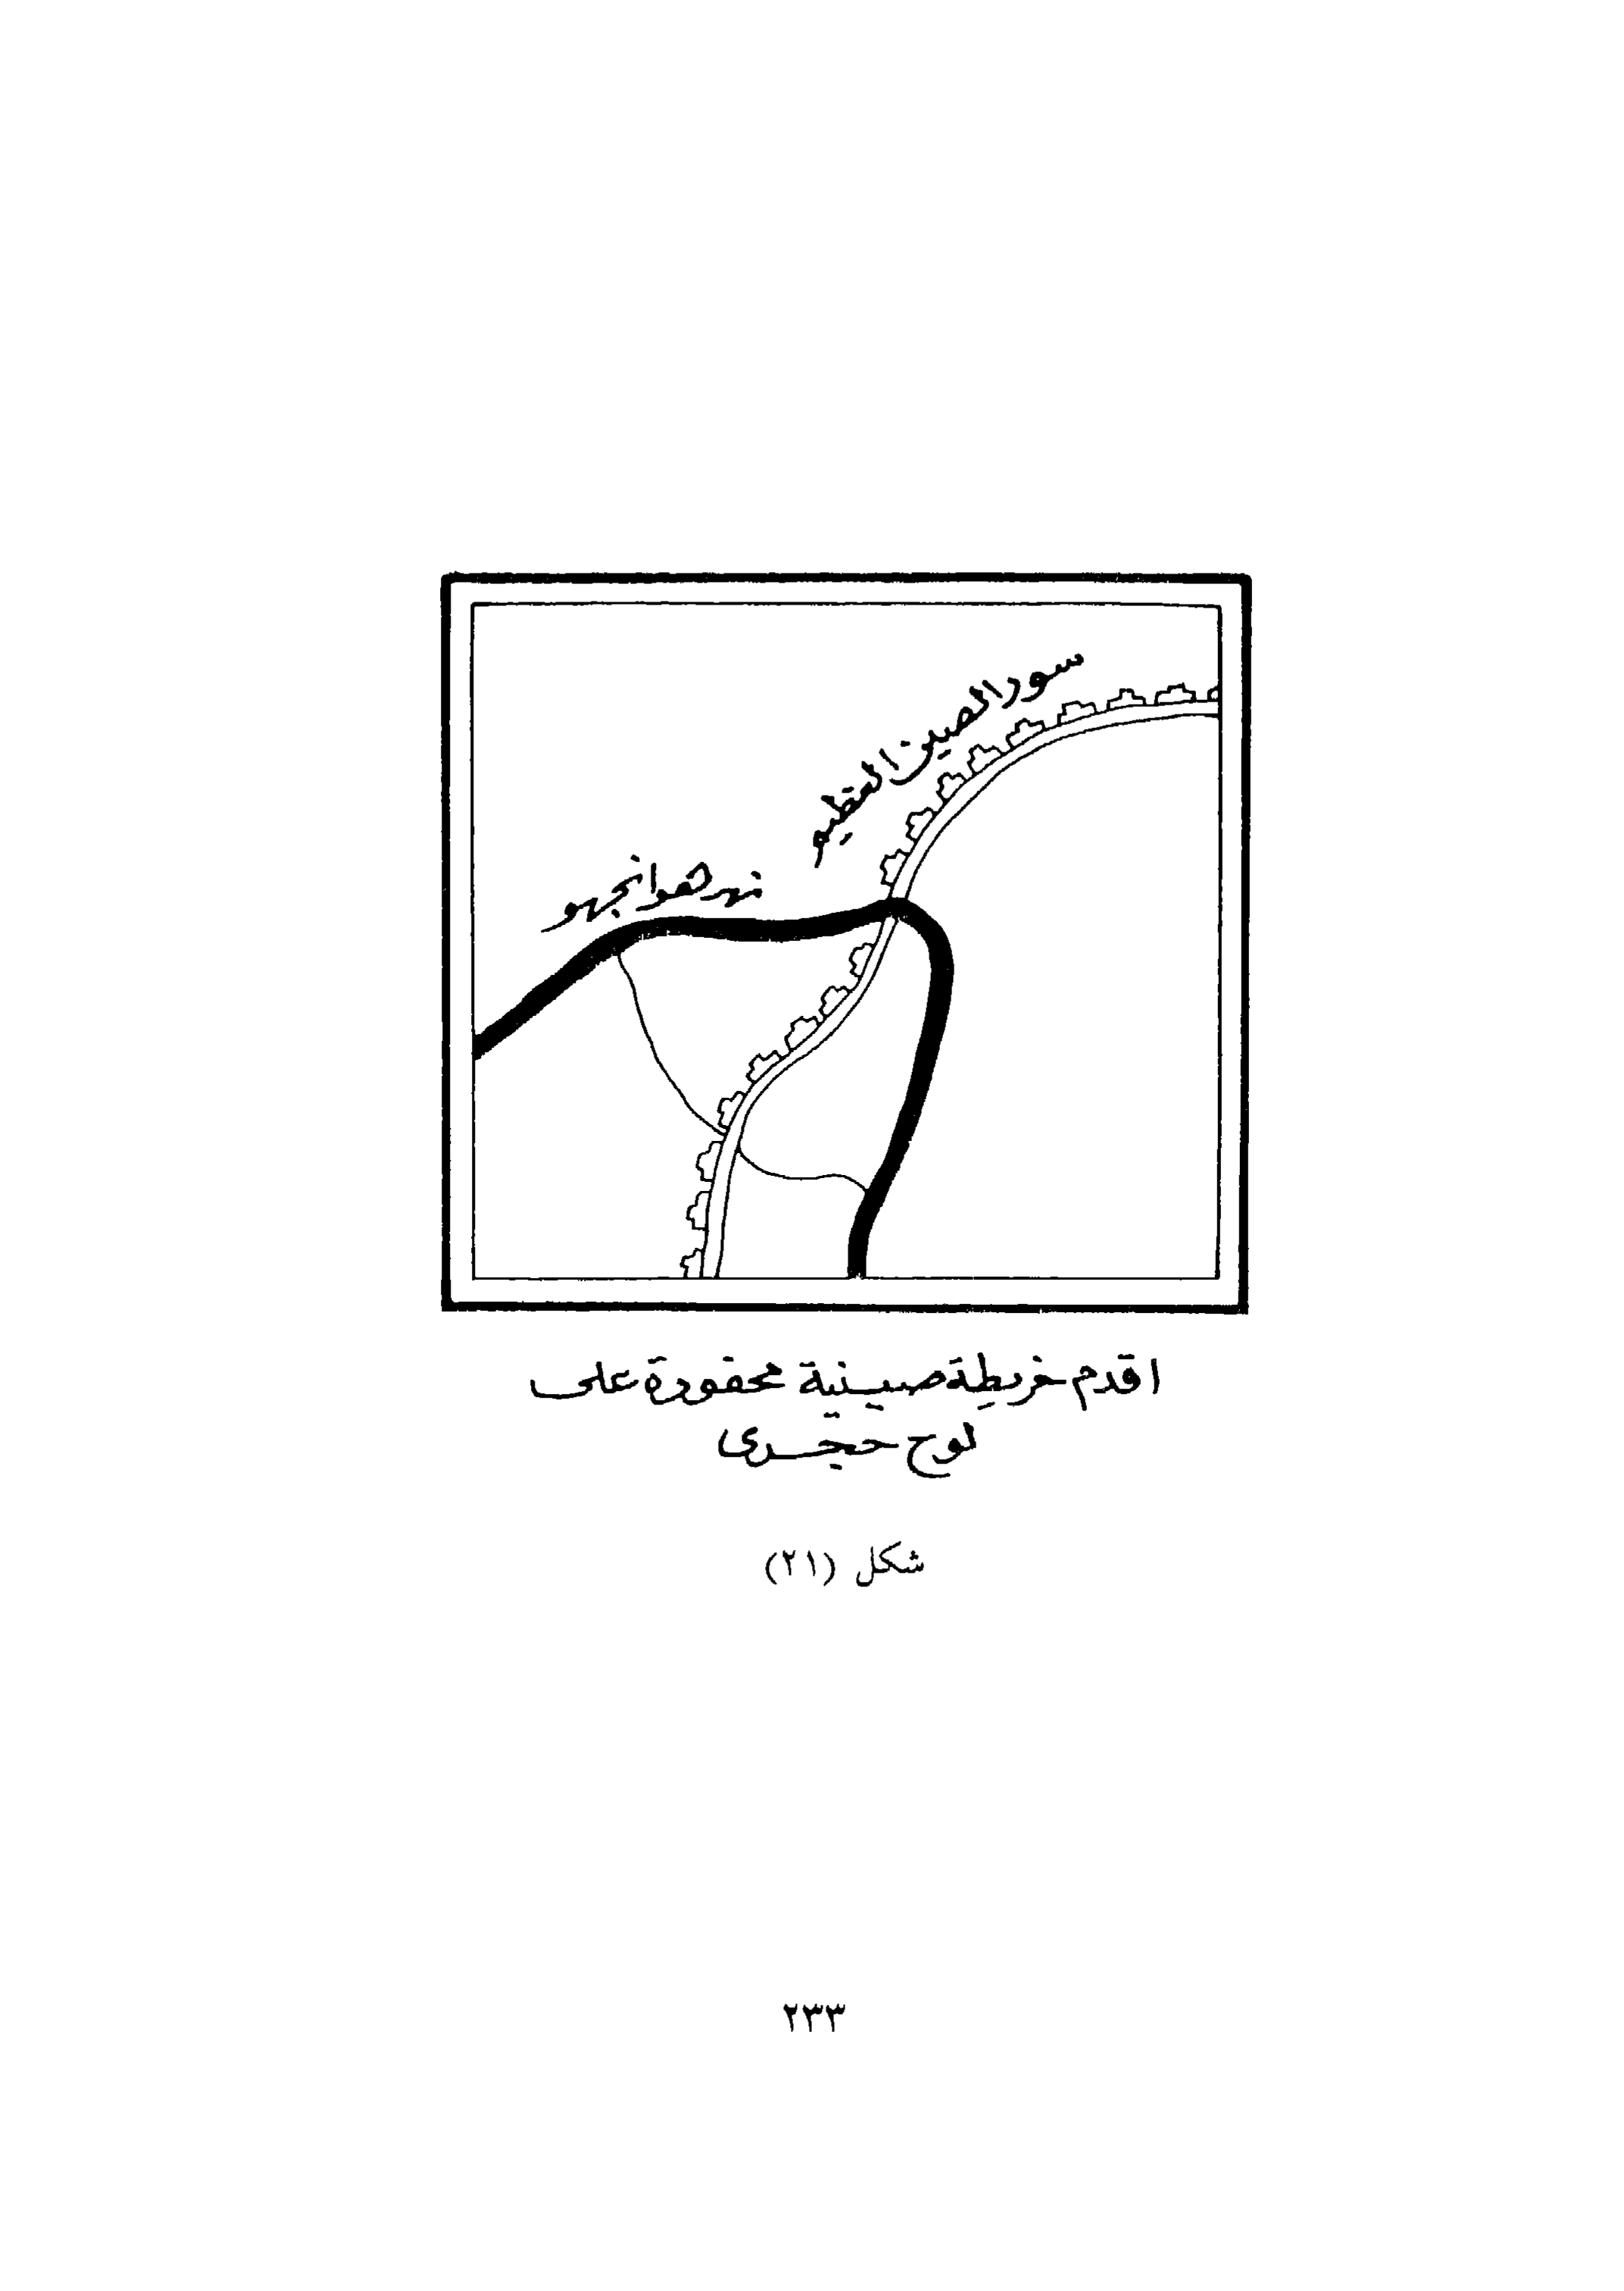 سور الصين العظيم
نهر هوانجهو
اقدم خريطة صينية محفورة على
لوح حجرى
شكل (٢١)
٢٣٣